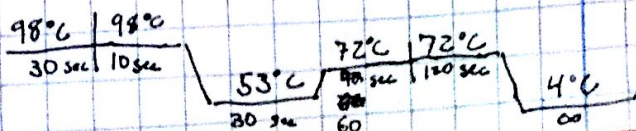 98°C 98°C
30 sec 10 sec
53°C
30 sec
72°C 72°C
sec 120 sec
60
4°C
∞